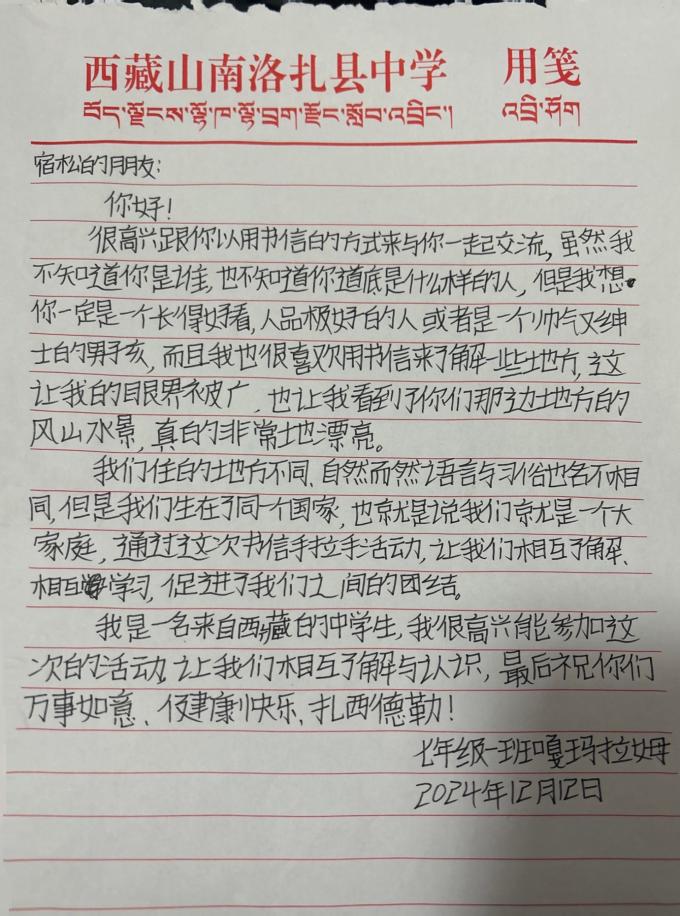 西藏山南洛扎县中学 用笺
བོད་ལྗོངས་ལྷོ་ཁ་ལྷོ་བྲག་རྫོང་སློབ་འབྲིང་། འབྲི་ཤོག
宿松的朋友:
你好!
很高兴跟你以用书信的方式来与你一起交流,虽然我
不知道你是谁,也不知道你道底是什么样的人,但是我想
你一定是一个长得好看,人品极好的人或者是一个帅气又绅
士的男孩,而且我也很喜欢用书信来了解一些地方,这
让我的眼界被广,也让我看到了你们那边地方的
风山水景,真的非常地漂亮。
我们住的地方不同、自然而然之语言与习俗也各不相
同,但是我们生在了同一个国家,也就是说我们就是一个大
家庭,通过这次书信手拉手活动,让我们相互了解、
相互学习,促进了我们之间的团结。
我是一名来自西藏的中学生,我很高兴能参加这
次的活动,让我们相互了解与认识,最后祝你们
万事如意、健康快乐、扎西德勒!
七年级一班嘎玛拉姆
2024年12月12日